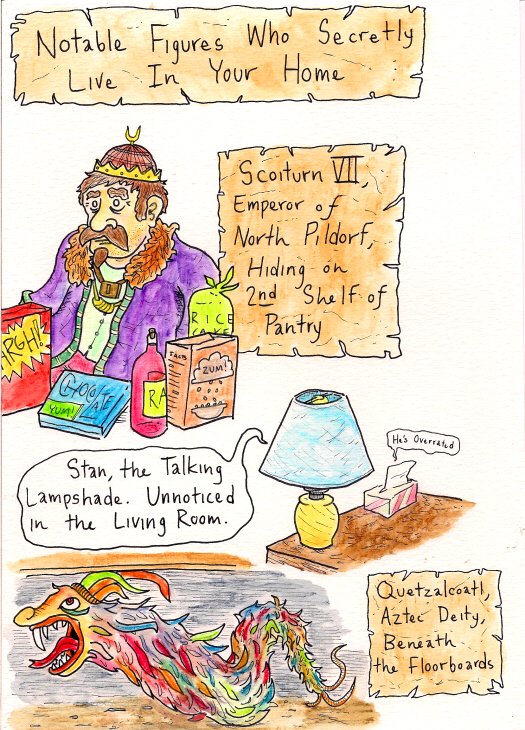 Notable Figures Who Secretly
Live In Your Home
Scoiturn VII,
Emperor of
North Pildorf,
Hiding on
2nd Shelf of
Pantry
RICE
CAKE
ARGH!!
CHOCO
LATE!
YUM!
RA
FACTS
ZUM!
He's Overrated
Stan, the Talking
Lampshade. Unnoticed
in the Living Room.
Quetzalcoatl,
Aztec Deity,
Beneath
the Floorboards